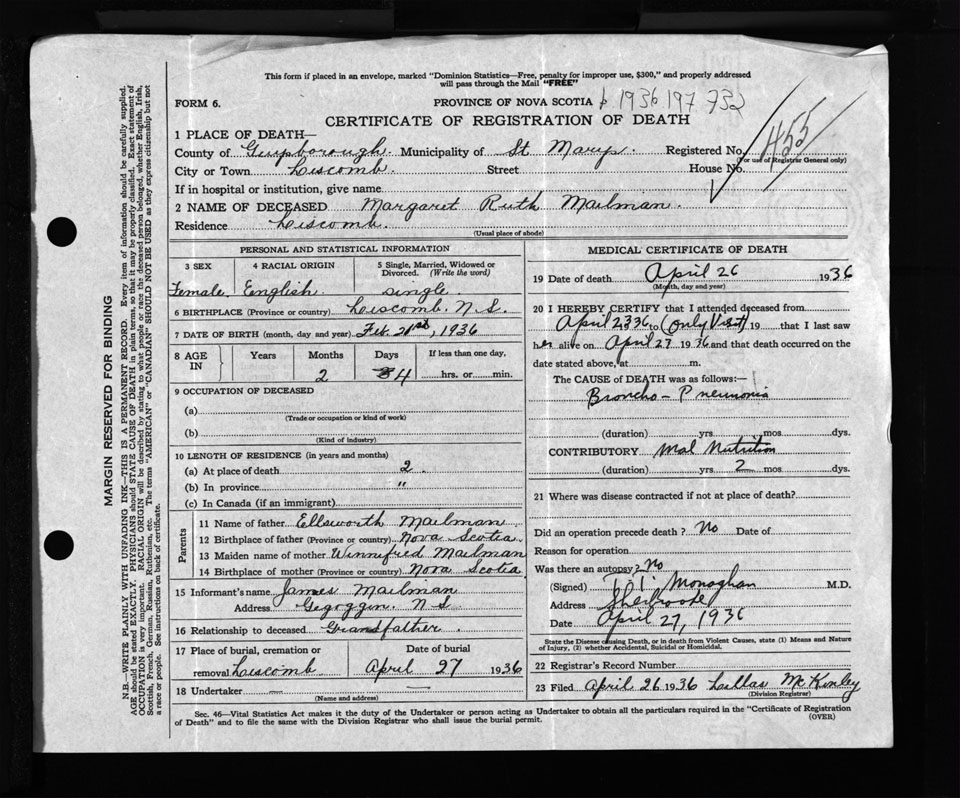 This form if placed in an envelope, marked "Dominion Statistics—Free, penalty for improper use, $300," and properly addressed
will pass through the Mail "FREE"
FORM 6.
PROVINCE OF NOVA SCOTIA 1936 197 732
CERTIFICATE OF REGISTRATION OF DEATH
455
1 PLACE OF DEATH—
County of Guysborough Municipality of St Marys. Registered No.
(For use of Registrar General only)
City or Town Liscomb. Street House No.
If in hospital or institution, give name
2 NAME OF DECEASED Margaret Ruth Mailman.
Residence Liscomb.
(Usual place of abode)
PERSONAL AND STATISTICAL INFORMATION
3 SEX 4 RACIAL ORIGIN 5 Single, Married, Widowed or
Divorced. (Write the word)
Female. English. single
6 BIRTHPLACE (Province or country) Liscomb, N.S.
7 DATE OF BIRTH (month, day and year) Feb. 21st, 1936
8 AGE IN Years Months Days If less than one day,
2 4 hrs. or min.
9 OCCUPATION OF DECEASED
(a)
(Trade or occupation or kind of work)
(b)
(Kind of industry)
10 LENGTH OF RESIDENCE (in years and months)
(a) At place of death 2.
(b) In province "
(c) In Canada (if an immigrant)
Parents
11 Name of father Ellsworth Mailman
12 Birthplace of father (Province or country) Nova Scotia
13 Maiden name of mother Winnifred Mailman
14 Birthplace of mother (Province or country) Nova Scotia
15 Informant's name James Mailman
Address Gegoggin. N S
16 Relationship to deceased Grandfather.
17 Place of burial, cremation or Date of burial
removal Liscomb April 27 1936
18 Undertaker — —
(Name and address)
MEDICAL CERTIFICATE OF DEATH
19 Date of death April 26 1936
(Month, day and year)
20 I HEREBY CERTIFY that I attended deceased from
April 23 36 to (only Visit) 19 that I last saw
her alive on April 27 1936 and that death occurred on the
date stated above, at m.
The CAUSE of DEATH was as follows:—
Broncho-Pneumonia
(duration) yrs. mos. dys.
CONTRIBUTORY Mal Nutrition
(duration) yrs. 2 mos. dys.
21 Where was disease contracted if not at place of death?
Did an operation precede death? No Date of
Reason for operation
Was there an autopsy? No
(Signed) Monaghan M.D.
Address Sherbrooke
Date April 27, 1936
State the Disease Causing Death, or in death from Violent Causes, state (1) Means and Nature
of Injury, (2) whether Accidental, Suicidal or Homicidal.
22 Registrar's Record Number
23 Filed April 26 1936 Lillas McKinley
(Division Registrar)
Sec. 46—Vital Statistics Act makes it the duty of the Undertaker or person acting as Undertaker to obtain all the particulars required in the "Certificate of Registration
of Death" and to file the same with the Division Registrar who shall issue the burial permit.
(OVER)
MARGIN RESERVED FOR BINDING
N.B.—WRITE PLAINLY WITH UNFADING INK—THIS IS A PERMANENT RECORD. Every item of information should be carefully supplied.
AGE should be stated EXACTLY. PHYSICIANS should STATE CAUSE OF DEATH in plain terms, so that it may be properly classified. Exact statement of
OCCUPATION is very important. RACIAL ORIGIN will be described by stating to what people or race the deceased person belonged, whether English, Irish,
Scottish, French, German, Russian, Ruthenian, etc. The terms "AMERICAN" or "CANADIAN" SHOULD NOT BE USED as they express citizenship but not
a race or people. See instructions on back of certificate.